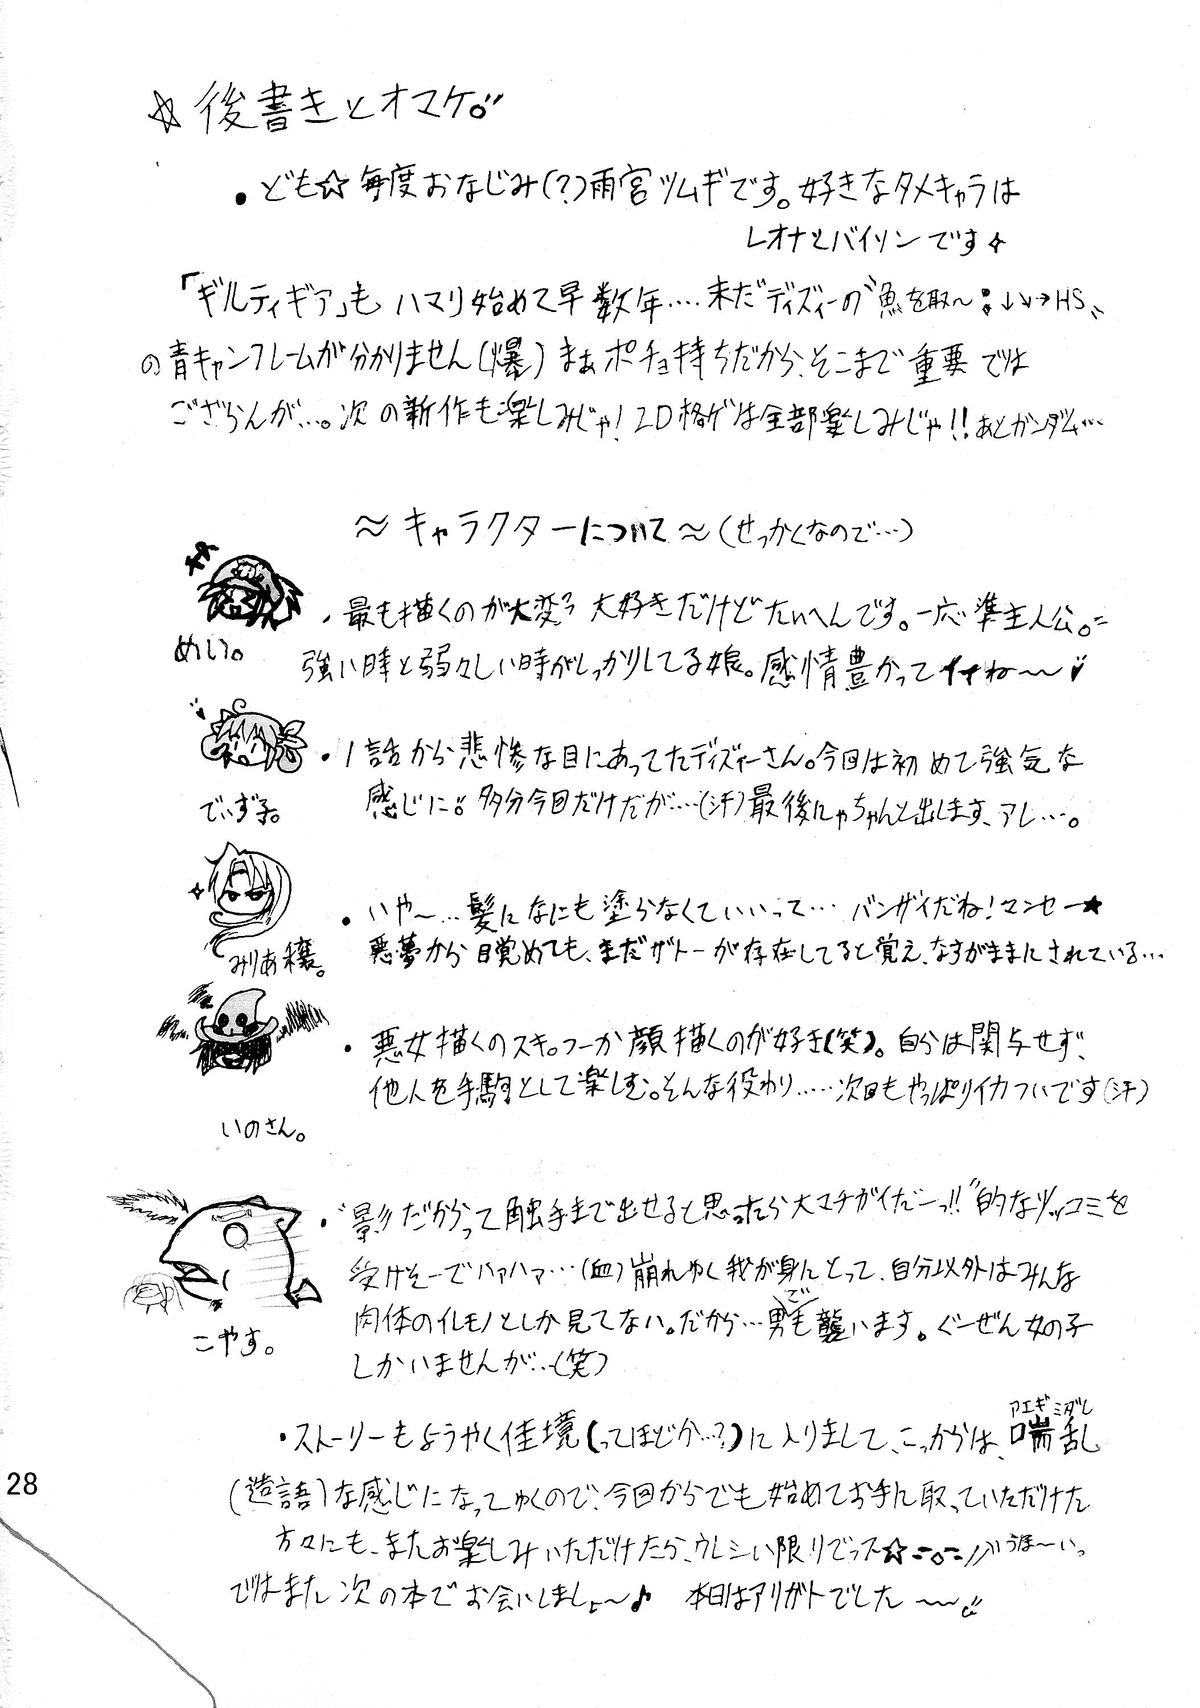 ☆後書きとオマケ。
・ども☆毎度おなじみ(?)雨宮ツムギです。好きなタメキャラは
レオナとバイソンです
「ギルティギア」もハマリ始めて早数年‥‥未だディズィーの"魚を取〜:↓↘→HS"
の青キャンフレームが分かりません(爆)まぁポチョ持ちだから、そこまで重要では
ござらんが…。次の新作も楽しみじゃ!2D格ゲは全部楽しみじゃ!!あとガンダム…
〜キャラクターについて〜(せっかくなので…)
・最も描くのが大変 大好きだけどたいへんです。一応準主人公。
めい。
強い時と弱々しい時がしっかりしてる娘。感情豊かってイイね〜〜
・1話から悲惨な目にあってたディズィーさん。今回は初めて強気な
でぃず子。
感じに。多分今回だけだが…(汗)最後にゃちゃんと出します、アレ…。
・いや〜…髪になにも塗らなくていいって… バンザイだね!マンセー★
みりあ穣。
悪夢から目覚めても、まだザトーが存在してると覚え、なすがままにされている…
・悪女描くのスキ。つーか顔描くのが好き(笑)。自分は関与せず、
他人を手駒として楽しむ。そんな役わり……次回もやっぱりイカついです(汗)
いのさん。
・"影だからって触手まで出せると思ったら大マチガイだーっ!!"的なツッコミを
受けそーでハァハァ…(血)崩れゆく我が身にとって、自分以外はみんな
こやす。
肉体のイレモノとしか見てない。だから…男でも襲います。ぐーぜん女の子
しかいませんが…(笑)
アエギミダレ
・ストーリーもようやく佳境(ってほどか…?)に入りまして、こっからは、喘乱
(造語)な感じになってゆくので、今回からでも始めてお手に取っていただけた
方々にも、またお楽しみいただけたら、ウレシい限りでっス☆ うほ〜い。
ではまた次の本でお会いしましょ〜♪ 本日はアリガトでした〜〜
28